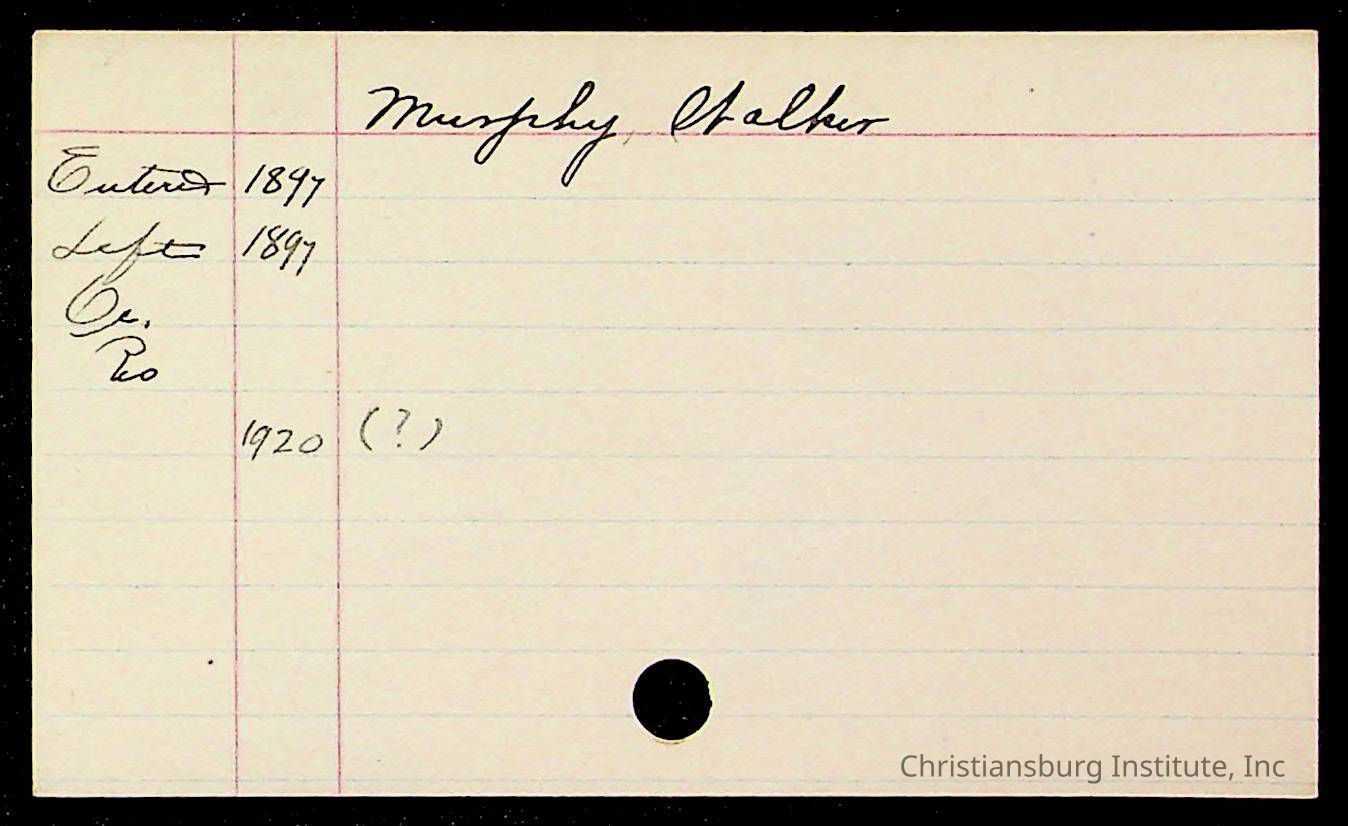 Murphy, Stalker
Entered 1897
Left 1897
Oc.
Ro
1920 (?)
Christiansburg Institute, Inc